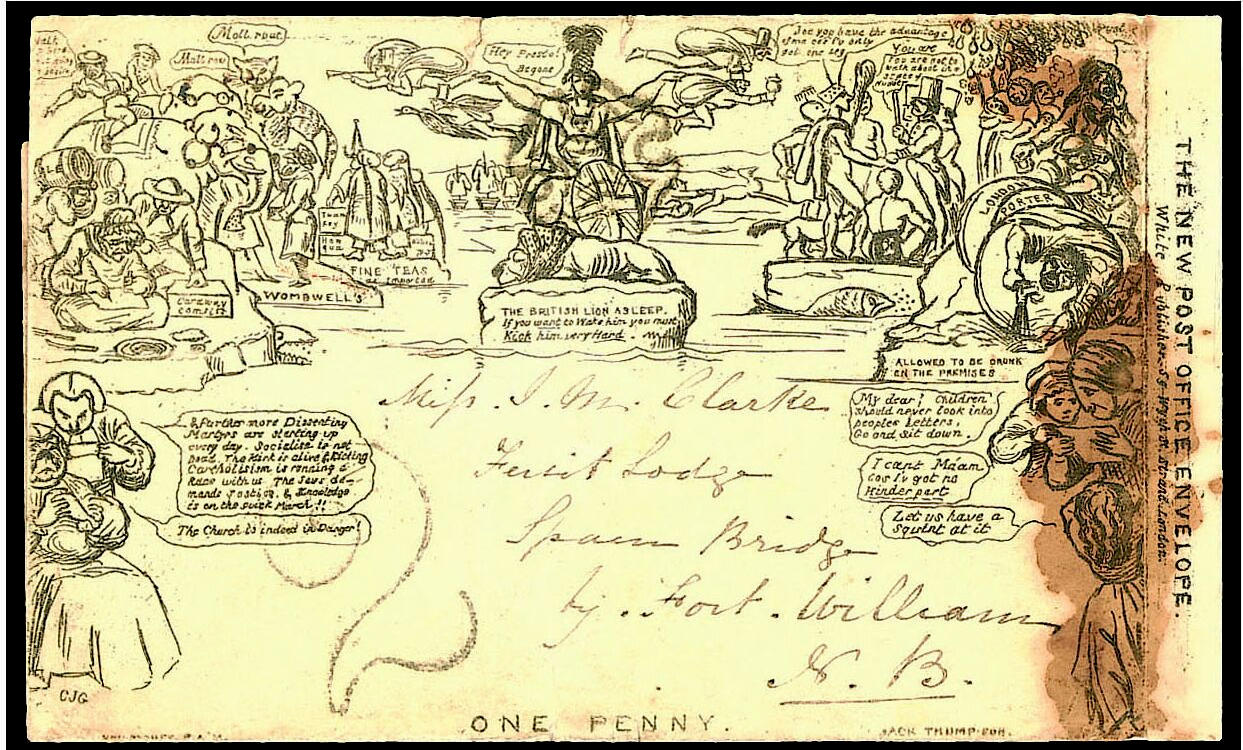 Moll. row!
Moll row
Hey Presto!
Begone
See you have the advantage
of me cos I'v only
got one leg
You are
You are not to
walk about in a
state of
LONDON
PORTER
FINE TEAS
as imported
WOMBWELL'S
Caraway
comfits
THE BRITISH LION ASLEEP.
If you want to Wake him you must
Kick him very Hard.
ALLOWED TO BE DRUNK
ON THE PREMISES
& further more Dissenting
Martyrs are starting up
every day. Socialism is not
Dead. The Kirk is alive & Kicking
Catholisism is running a
Race with us. The Jews de-
mands Justice, & Knowledge
is on the quick March!!
The Church is indeed in Danger!
My dear! Children
should never look into
peoples Letters,
Go and sit down.
I cant Maam
cos I'v got no
hinder part
Let us have a
Squint at it
Miss. J. M. Clarke
Lodge
Spean Bridge
by. Fort. William
N. B.
2
CJG
ONE PENNY.
JACK THUMP-SON.
THE NEW POST OFFICE ENVELOPE.
White Publisher Wych St. Strand. London.